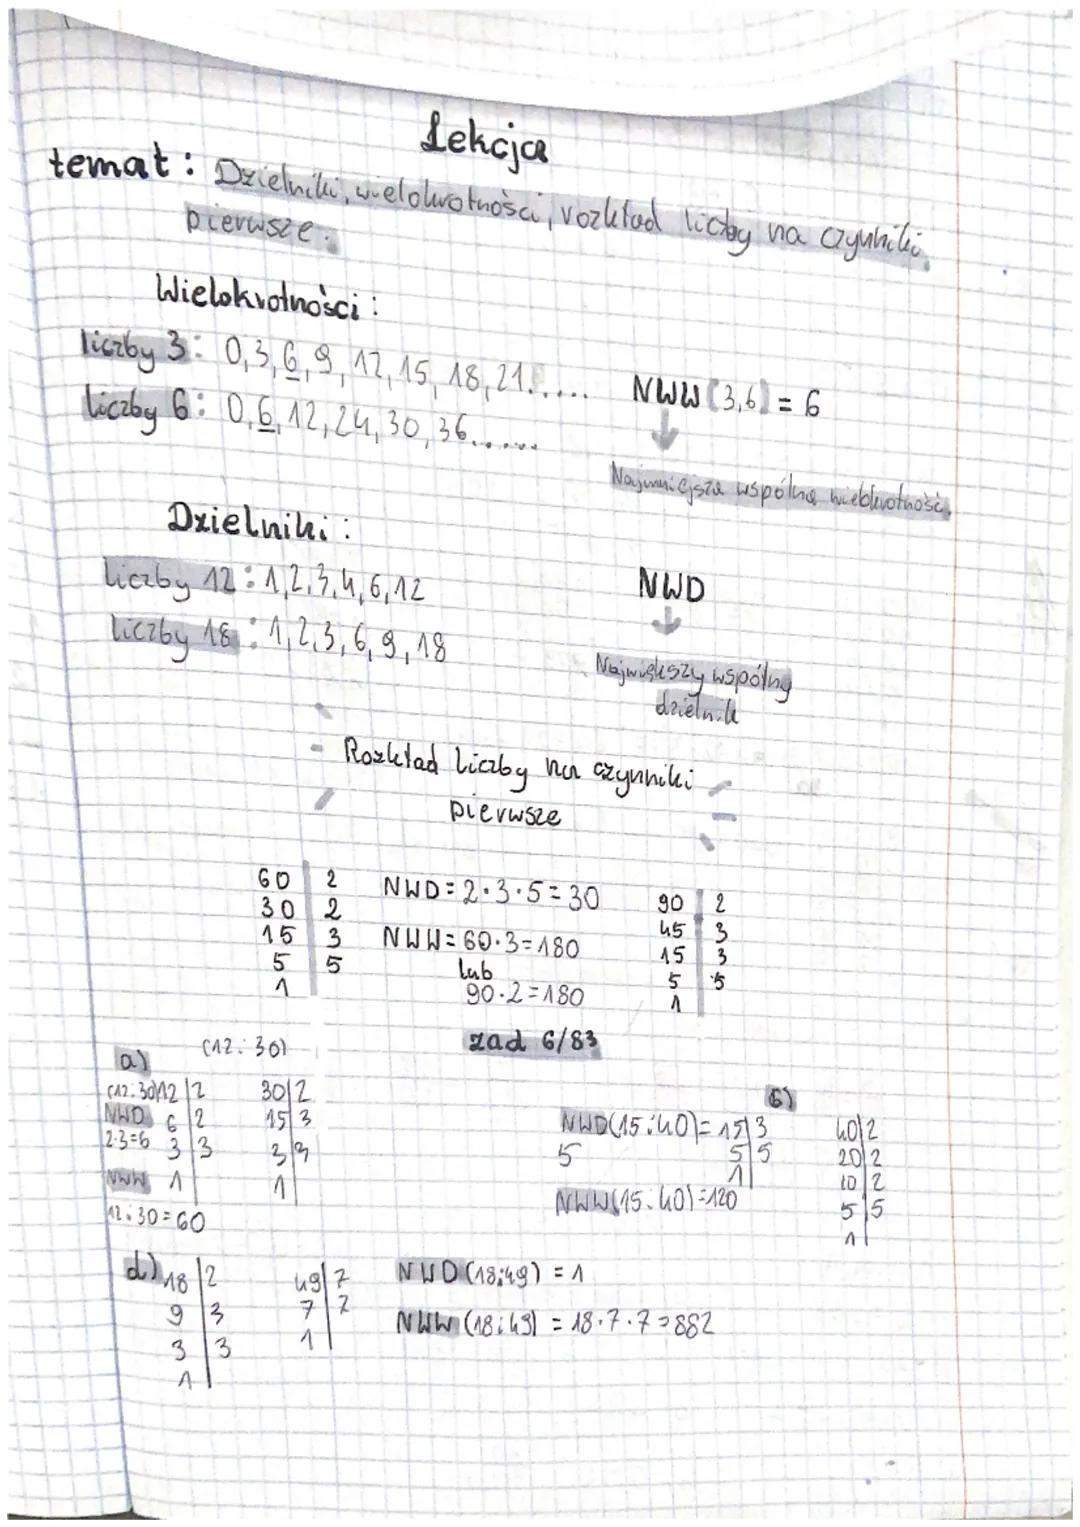 Lekcja
temat: Dzielniki, wielokrotności, rozkład liczby na czynniki
pierwsze.
Wielokrotności:
liczby 3: 0,3,6,9,12,15,18,21.....
NWW(3,6) = 6
liczby 6: 0,6,12,24,30,36.....
Najmniejsza wspólna wielokrotność.
Dzielniki:
liczby 12: 1,2,3,4,6,12
NWD
liczby 18: 1,2,3,6,9,18
Największy wspólny
dzielnik
- Rozkład liczby na czynniki
pierwsze
60 | 2 NWD=2·3·5=30 90 | 2
30 | 2 45 | 3
15 | 3 NWW=60·3=180 15 | 3
5 | 5 lub 5 | 5
1 90·2=180 1
zad 6/83
a) (12:30)
(12:30) 12|2 30|2
NWD 6|2 15|3
2·3=6 3|3 3|3
NWW 1| 1|
12:30=60
b)
NWD(15:40)= 15|3 40|2
5 5|5 20|2
1| 10|2
NWW(15:40)=120 5|5
1|
d) 18|2 49|7 NWD(18;49) = 1
9|3 7|7
3|3 1| NWW(18;49) = 18·7·7=882
1|